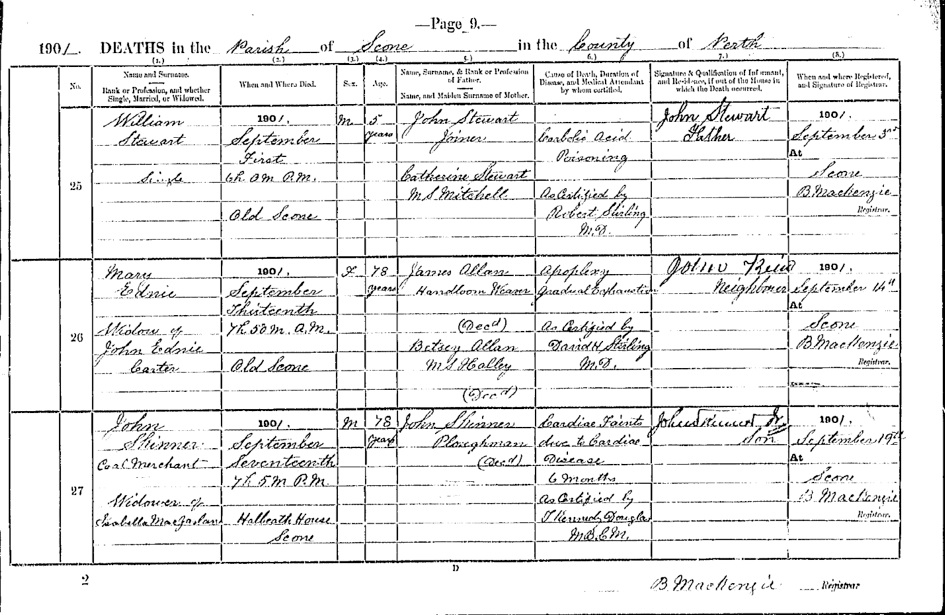 —Page 9.—
1901. DEATHS in the Parish of Scone in the County of Perth
(1.) (2.) (3.) (4.) (5.) (6.) (7.) (8.)
No. Name and Surname. Rank or Profession, and whether Single, Married, or Widowed. When and Where Died. Sex. Age. Name, Surname, & Rank or Profession of Father. Name, and Maiden Surname of Mother. Cause of Death, Duration of Disease, and Medical Attendant by whom certified. Signature & Qualification of Informant, and Residence, if out of the House in which the Death occurred. When and where Registered, and Signature of Registrar.
25
William
Stewart
Single
1901.
September
First
6h. 0m P.M.
Old Scone
M
5
years
John Stewart
Joiner
Catherine Stewart
M.S Mitchell
Carbolic Acid
Poisoning
As Certified by
Robert Stirling
M.D.
John Stewart
Father
1901.
September 3rd
At
Scone
B. Mackenzie
Registrar.
26
Mary
Ednie
Widow of
John Ednie
Carter
1901.
September
Thirteenth
7h. 50m. A.M.
Old Scone
F
78
years
James Allan
Handloom Weaver
(Decd)
Betsey Allan
M.S Halley
(Decd)
Apoplexy
Gradual Exhaustion
As Certified by
David H. Stirling
M.D.
John Reid
Neighbour
1901.
September 14th
At
Scone
B. MacKenzie
Registrar.
27
John
Skinner
Coal Merchant
Widower of
Isabella MacFarlane
1901.
September
Seventeenth
7h. 5m P.M
Halbeath House
Scone
M
78
years
John Skinner
Ploughman
(Decd)
Cardiac Faints
due to Cardiac
Disease
6 Months
As Certified by
T Kennedy Douglas
M.B.C.M.
John Skinner Jr
Son
1901.
September 19th
At
Scone
B MacKenzie
Registrar.
2
D
B. MacKenzie Registrar